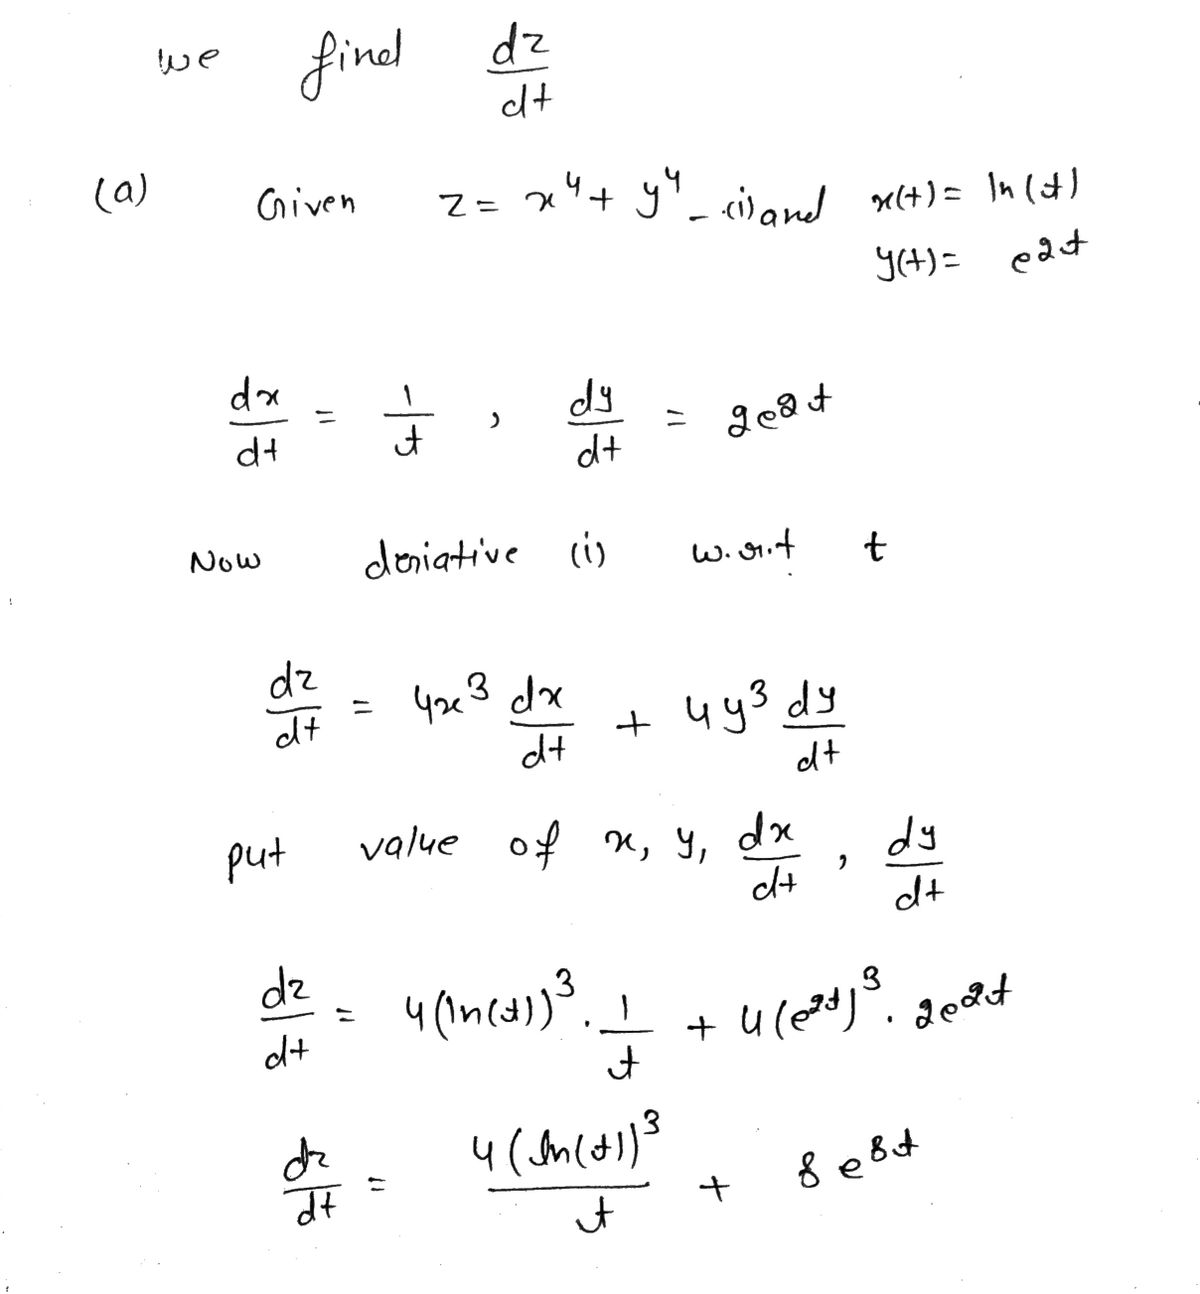 we find dz/dt
(a) Given z = x⁴ + y⁴ - (i) and x(t) = ln(t)
y(t) = e²ᵗ
dx/dt = 1/t , dy/dt = 2e²ᵗ
Now deriative (i) w.r.t t
dz/dt = 4x³ dx/dt + 4y³ dy/dt
put value of x, y, dx/dt , dy/dt
dz/dt = 4(ln(t))³ . 1/t + 4(e²ᵗ)³ . 2e²ᵗ
dz/dt = 4(ln(t))³/t + 8e⁸ᵗ